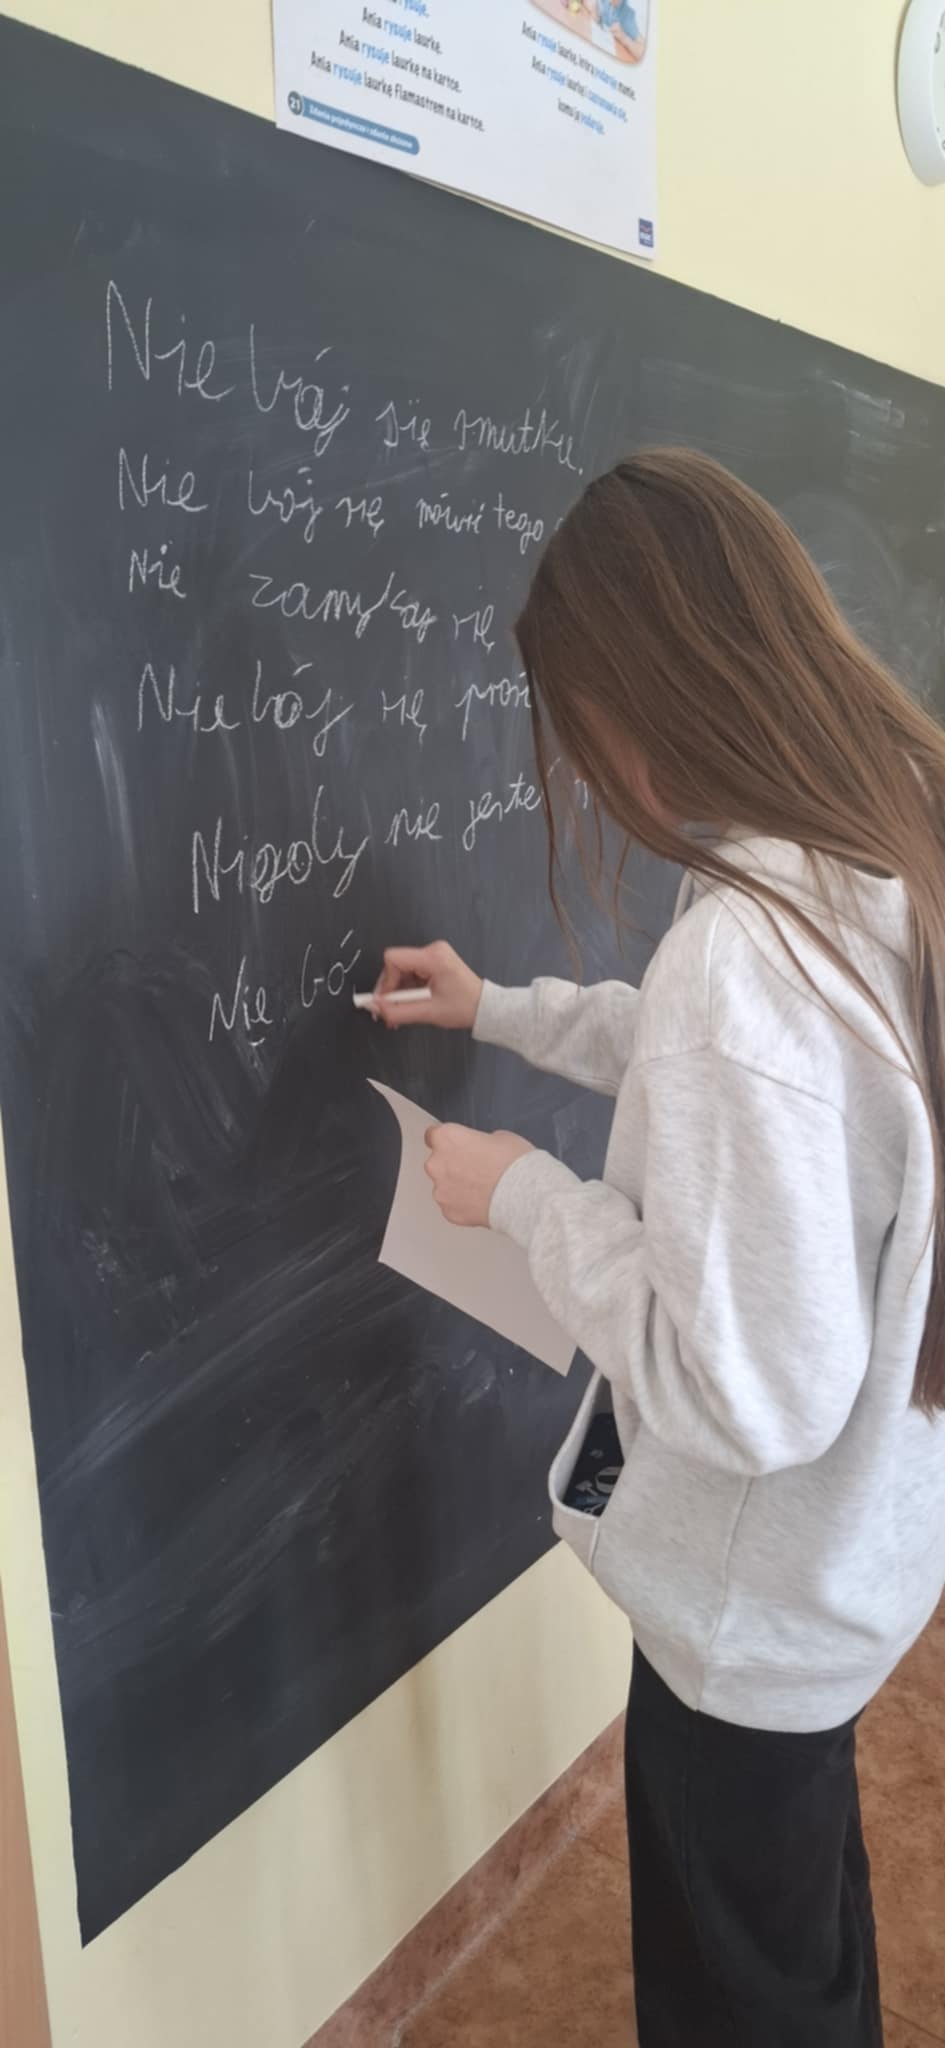 rysuje.
Ania rysuje laurkę.
Ania rysuje laurkę na kartce.
Ania rysuje laurkę flamastrem na kartce.
21 Zdania pojedyncze i zdania złożone
Ania rysuje laurkę, którą podaruje mamie.
Ania rysuje laurkę i zastanawia się,
komu ją podaruje.
Nie bój się smutku.
Nie bój się mówić tego
Nie zamykaj się
Nie bój się prosić
Nigdy nie jesteś
Nie bó